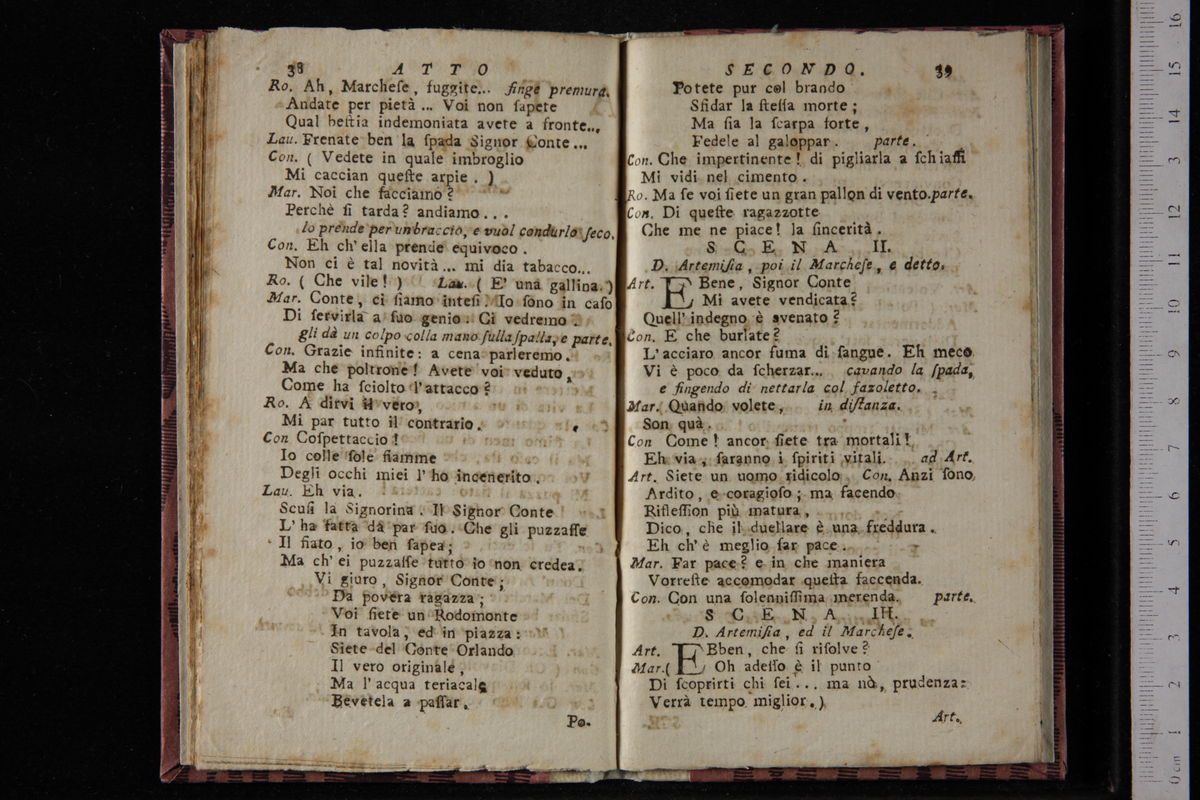 38 ATTO
Ro. Ah, Marcheſe, fuggite... finge premura.
Andate per pietà... Voi non ſapete
Qual beſtia indemoniata avete a fronte...
Lau. Frenate ben la ſpada Signor Conte...
Con. ( Vedete in quale imbroglio
Mi caccian queſte arpie. )
Mar. Noi che facciamo?
Perchè ſi tarda? andiamo...
lo prende per un braccio, e vuol condurlo ſeco.
Con. Eh ch' ella prende equivoco.
Non ci è tal novità... mi dia tabacco...
Ro. ( Che vile! ) Lau. ( E' una gallina. )
Mar. Conte, ci ſiamo inteſi. Io ſono in caſo
Di ſervirla a ſuo genio. Ci vedremo.
gli dà un colpo colla mano ſulla ſpalla, e parte.
Con. Grazie infinite: a cena parleremo.
Ma che poltrone! Avete voi veduto,
Come ha ſciolto l'attacco?
Ro. A dirvi il vero,
Mi par tutto il contrario.
Con Coſpettaccio!
Io colle ſole fiamme
Degli occhi miei l' ho incenerito.
Lau. Eh via.
Scuſi la Signorina. Il Signor Conte
L' ha fatta da par ſuo. Che gli puzzaſſe
Il fiato, io ben ſapea;
Ma ch' ei puzzaſſe tutto io non credea.
Vi giuro, Signor Conte;
Da povera ragazza;
Voi ſiete un Rodomonte
In tavola, ed in piazza:
Siete del Conte Orlando
Il vero originale,
Ma l' acqua teriacale
Bevetela a paſſar.
Po-
SECONDO. 39
Potete pur col brando
Sfidar la ſteſſa morte;
Ma ſia la ſcarpa forte,
Fedele al galoppar. parte.
Con. Che impertinente! di pigliarla a ſchiaffi
Mi vidi nel cimento.
Ro. Ma ſe voi ſiete un gran pallon di vento. parte.
Con. Di queſte ragazzotte
Che me ne piace! la ſincerità.
SCENA II.
D. Artemiſia, poi il Marcheſe, e detto.
Art. E Bene, Signor Conte
Mi avete vendicata?
Quell' indegno è svenato?
Con. E che burlate?
L' acciaro ancor fuma di ſangue. Eh meco
Vi è poco da ſcherzar... cavando la ſpada,
e fingendo di nettarla col fazoletto.
Mar. Quando volete, in diſtanza.
Son quà.
Con Come! ancor ſiete tra mortali!
Eh via, ſaranno i ſpiriti vitali. ad Art.
Art. Siete un uomo ridicolo Con. Anzi ſono
Ardito, e coragioſo; ma facendo
Rifleſſion più matura,
Dico, che il duellare è una freddura.
Eh ch' è meglio far pace.
Mar. Far pace? e in che maniera
Vorreſte accomodar queſta faccenda.
Con. Con una ſolenniſſima merenda. parte.
SCENA III.
D. Artemiſia, ed il Marcheſe.
Art. EEben, che ſi riſolve?
Mar. ( Oh adeſſo è il punto
Di ſcoprirti chi ſei... ma nò, prudenza:
Verrà tempo miglior. )
Art.